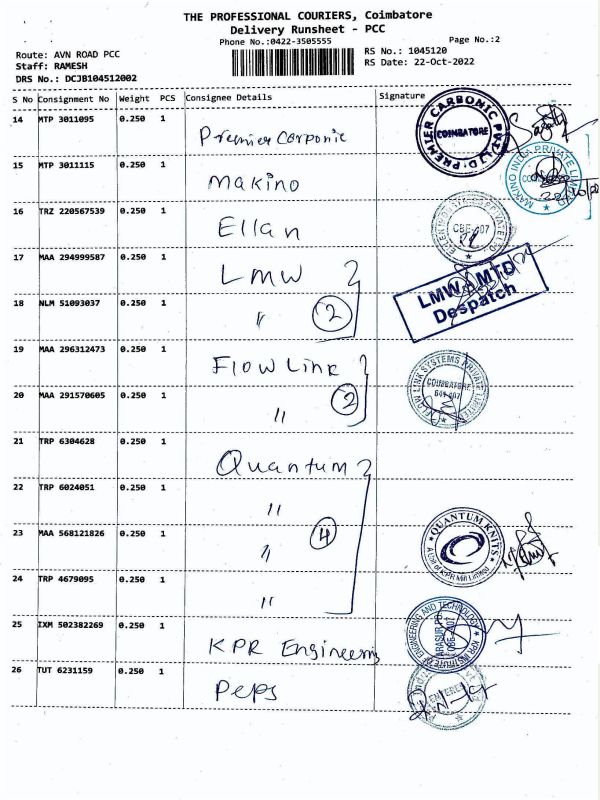 THE PROFESSIONAL COURIERS, Coimbatore
Delivery Runsheet - PCC
Phone No.:0422-3505555
Page No.:2
Route: AVN ROAD PCC
RS No.: 1045120
Staff: RAMESH
RS Date: 22-Oct-2022
DRS No.: DCJB104512002
S No Consignment No Weight PCS Consignee Details Signature
14 MTP 3011095 0.250 1 Premier Carponic
PREMIER CARBONIC PVT. LTD. COIMBATORE
15 MTP 3011115 0.250 1 Makino
MAKINO INDIA PRIVATE LIMITED
16 TRZ 220567539 0.250 1 Ellan
CBE-407
17 MAA 294999587 0.250 1 LMW
LMW MTD
Despatch
18 NLM 51093037 0.250 1 " 2
19 MAA 296312473 0.250 1 Flow Link
FLOW LINK SYSTEMS PRIVATE LIMITED
COIMBATORE
641 407
20 MAA 291570605 0.250 1 " 2
21 TRP 6304628 0.250 1 Quantum
22 TRP 6024051 0.250 1 "
23 MAA 568121826 0.250 1 " 4
QUANTUM KNITS
A Unit of KPR Mill Limited
24 TRP 4679095 0.250 1 "
25 IXM 502382269 0.250 1 KPR Engineering
KPR INSTITUTE OF ENGINEERING AND TECHNOLOGY
ARASUR PO
COE-407
26 TUT 6231159 0.250 1 Peps